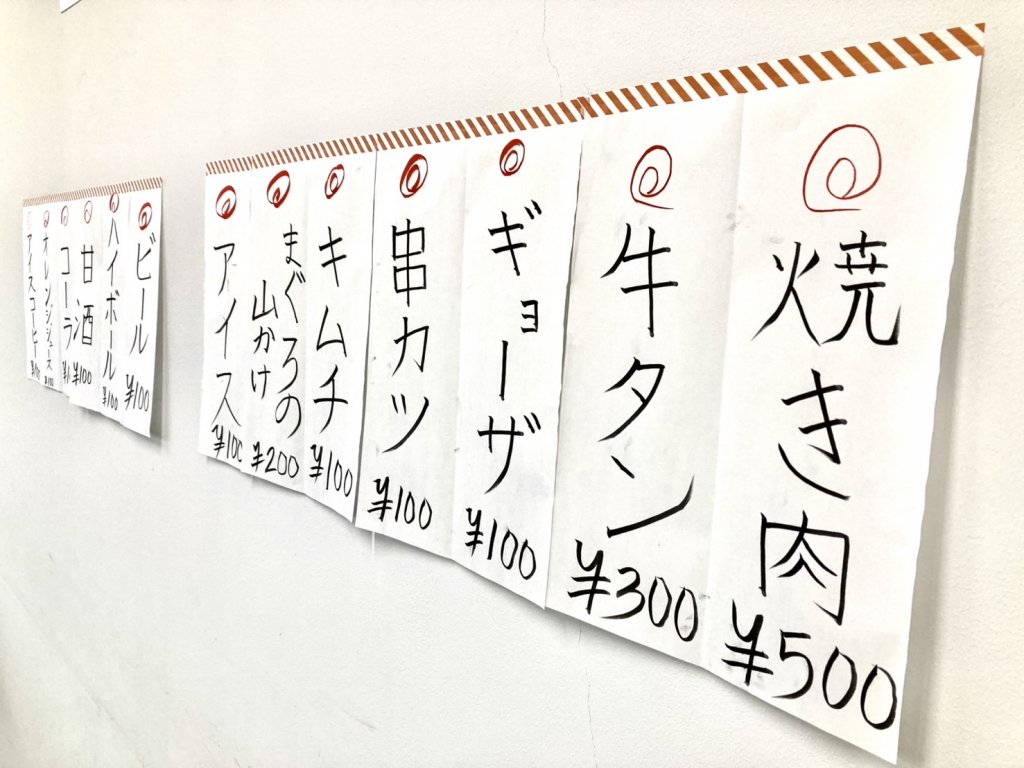 焼き肉
¥500
牛タン
¥300
ギョーザ
¥100
串カツ
¥100
キムチ
¥100
まぐろの
山かけ
¥200
アイス
¥100
ビール
¥100
ヘイボール
¥100
甘酒
¥100
コーラ
オレンジジュース
アイスコーヒー